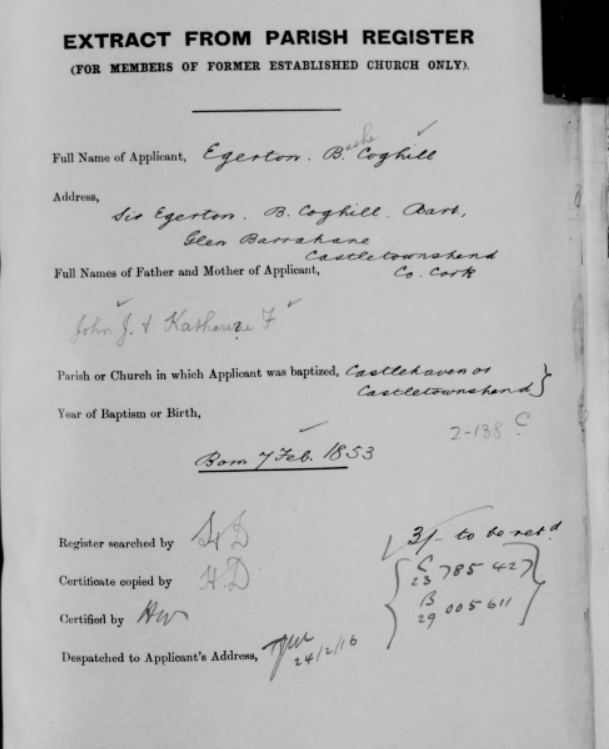 EXTRACT FROM PARISH REGISTER
(FOR MEMBERS OF FORMER ESTABLISHED CHURCH ONLY).
Full Name of Applicant, Egerton. B.ushe Coghill
Address,
Sir Egerton. B. Coghill. Bart,
Glen Barrahane
Castletownshend
Co. Cork
Full Names of Father and Mother of Applicant,
John J. & Katharine F
Parish or Church in which Applicant was baptized, Castlehaven or
Castletownshend
Year of Baptism or Birth,
2-138 C
?
Born 7 Feb. 1853
3/- to be retd
Register searched by HD
C 785 427
23
Certificate copied by H.D
B 005 611
29
Certified by HW
Despatched to Applicant's Address, 24/2/16